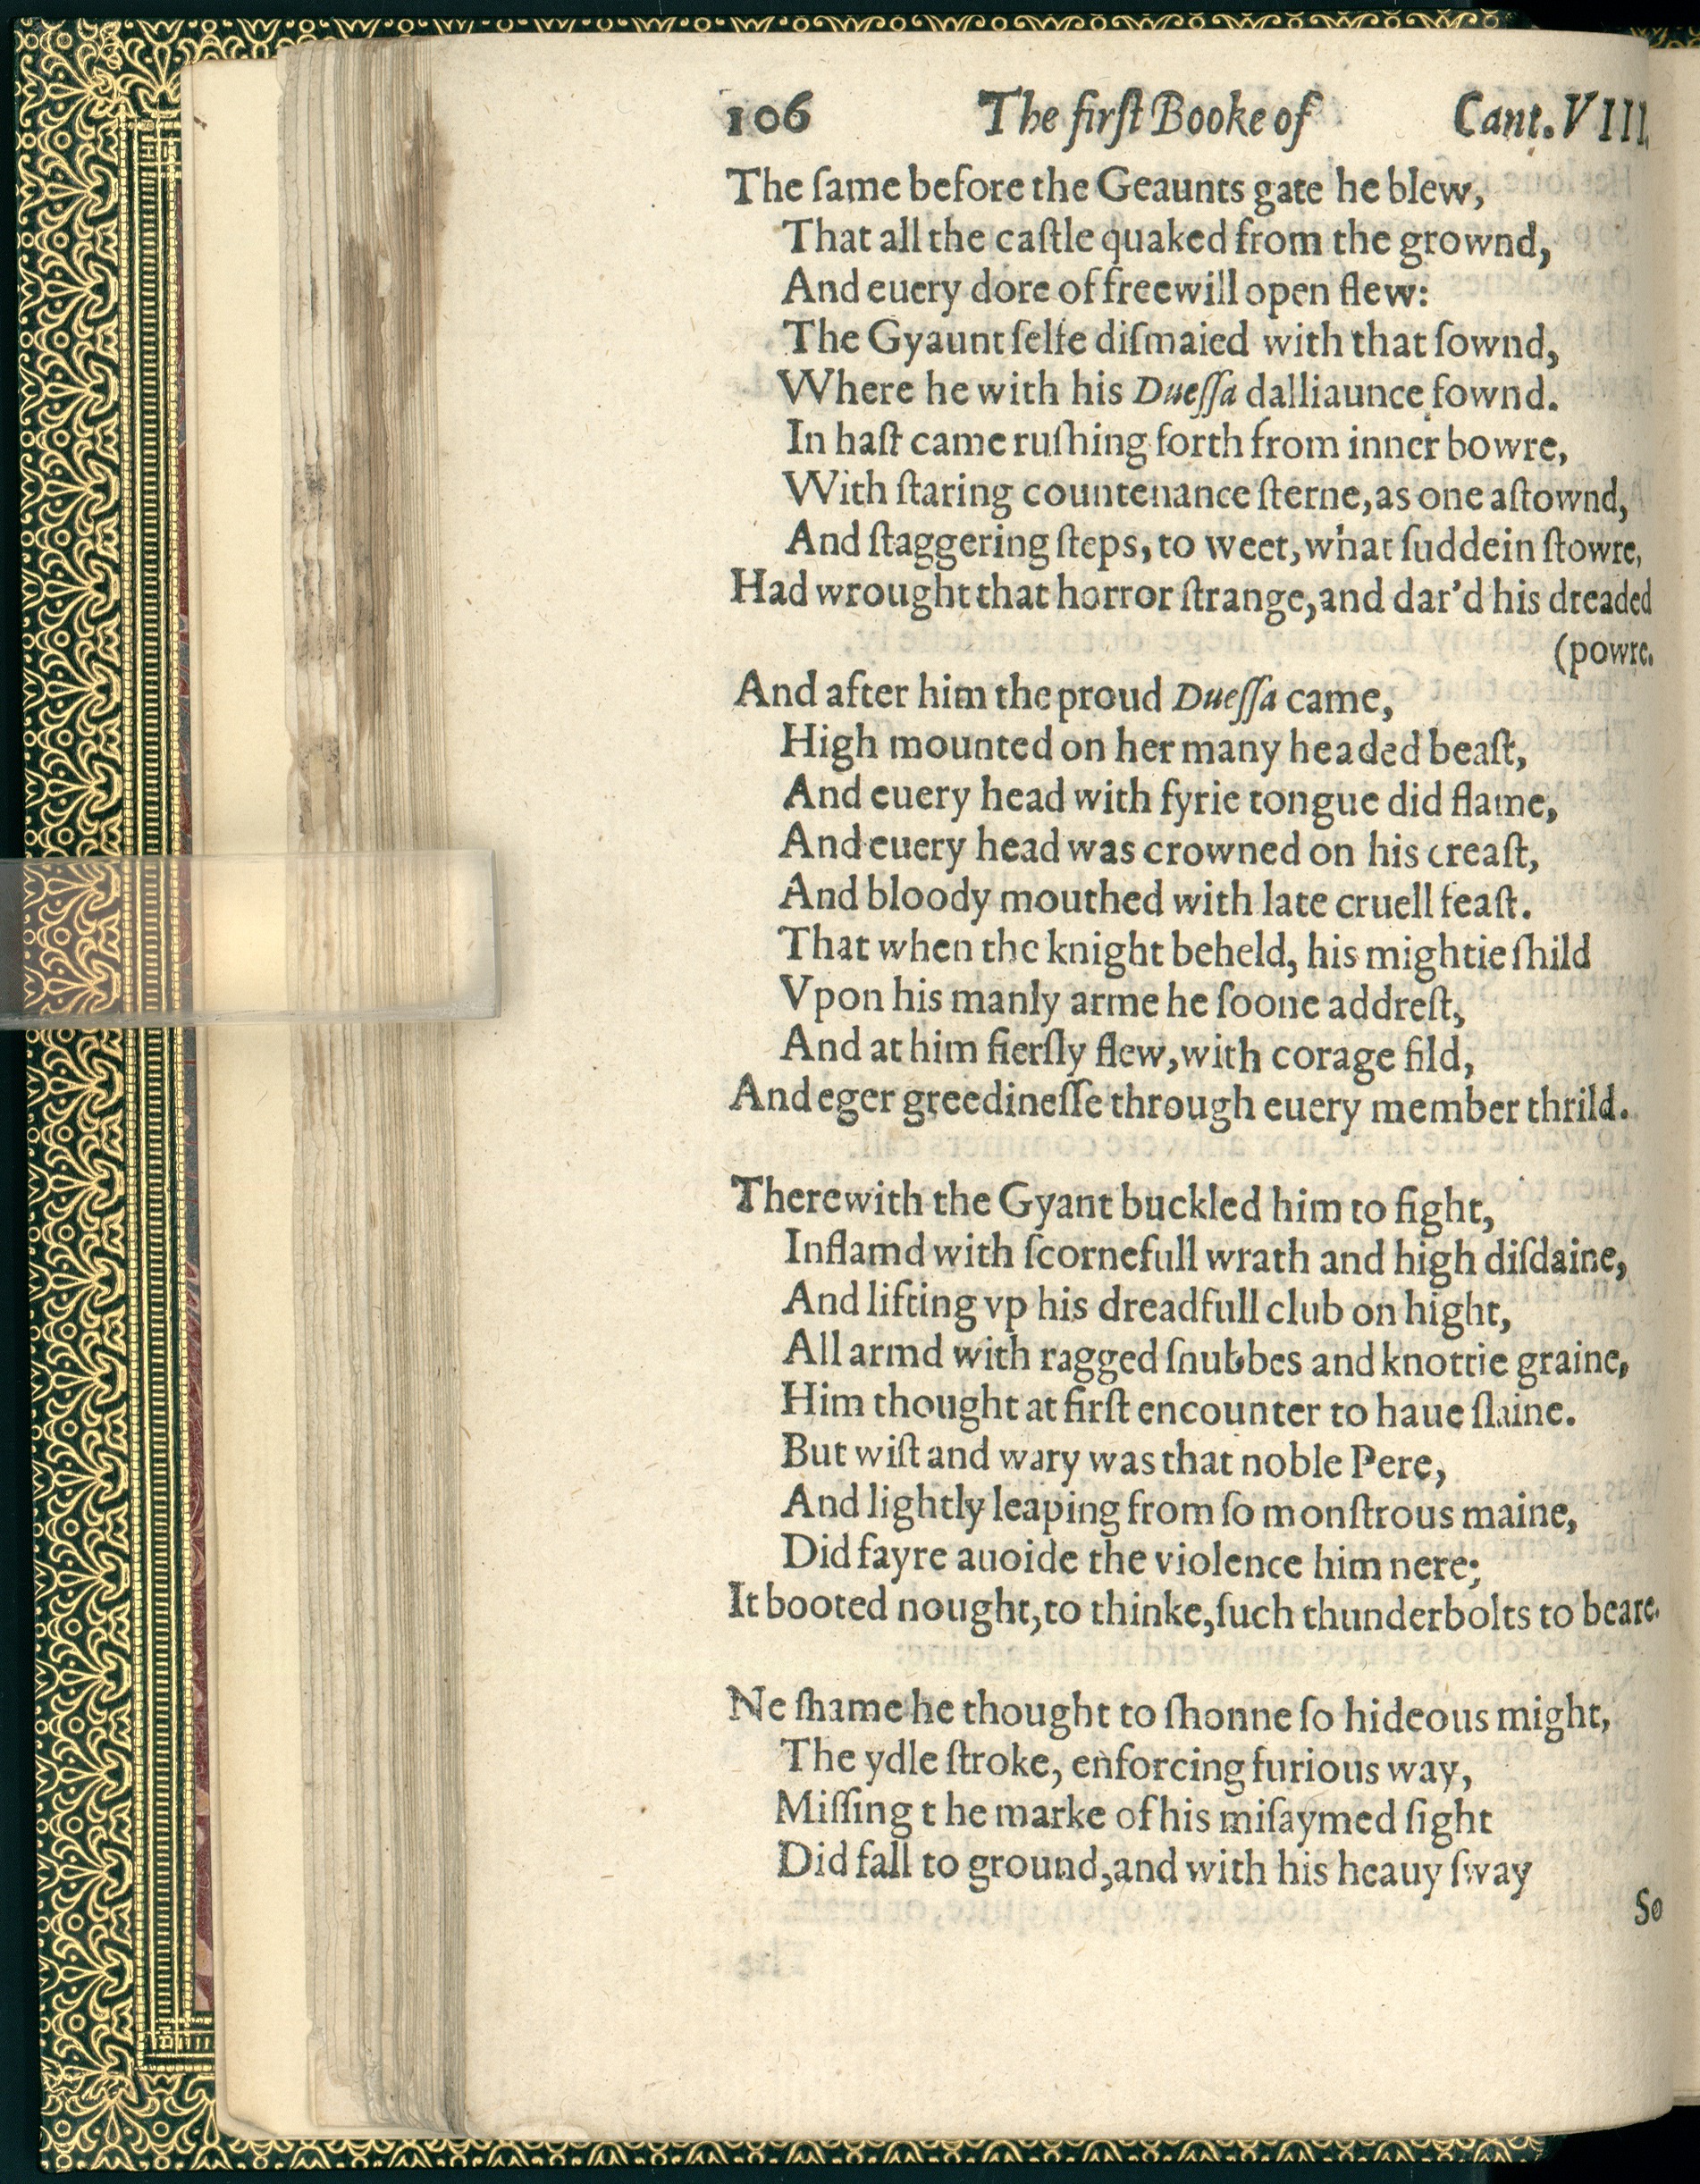 106 The firſt Booke of Cant. VIII.
The ſame before the Geaunts gate he blew,
That all the caſtle quaked from the grownd,
And euery dore of freewill open flew:
The Gyaunt ſelfe diſmaied with that ſownd,
Where he with his Dueſſa dalliaunce fownd.
In haſt came ruſhing forth from inner bowre,
With ſtaring countenance ſterne, as one aſtownd,
And ſtaggering ſteps, to weet, what ſuddein ſtowre,
Had wrought that horror ſtrange, and dar'd his dreaded
(powre.
And after him the proud Dueſſa came,
High mounted on her many headed beaſt,
And euery head with fyrie tongue did flame,
And euery head was crowned on his creaſt,
And bloody mouthed with late cruell feaſt.
That when the knight beheld, his mightie ſhild
Vpon his manly arme he ſoone addreſt,
And at him fierſly flew, with corage fild,
And eger greedineſſe through euery member thrild.
Therewith the Gyant buckled him to fight,
Inflamd with ſcornefull wrath and high diſdaine,
And lifting vp his dreadfull club on hight,
All armd with ragged ſnubbes and knottie graine,
Him thought at firſt encounter to haue ſlaine.
But wiſt and wary was that noble Pere,
And lightly leaping from ſo monſtrous maine,
Did fayre auoide the violence him nere;
It booted nought, to thinke, ſuch thunderbolts to beare.
Ne ſhame he thought to ſhonne ſo hideous might,
The ydle ſtroke, enforcing furious way,
Miſſing t he marke of his miſaymed ſight
Did fall to ground, and with his heauy ſway
So